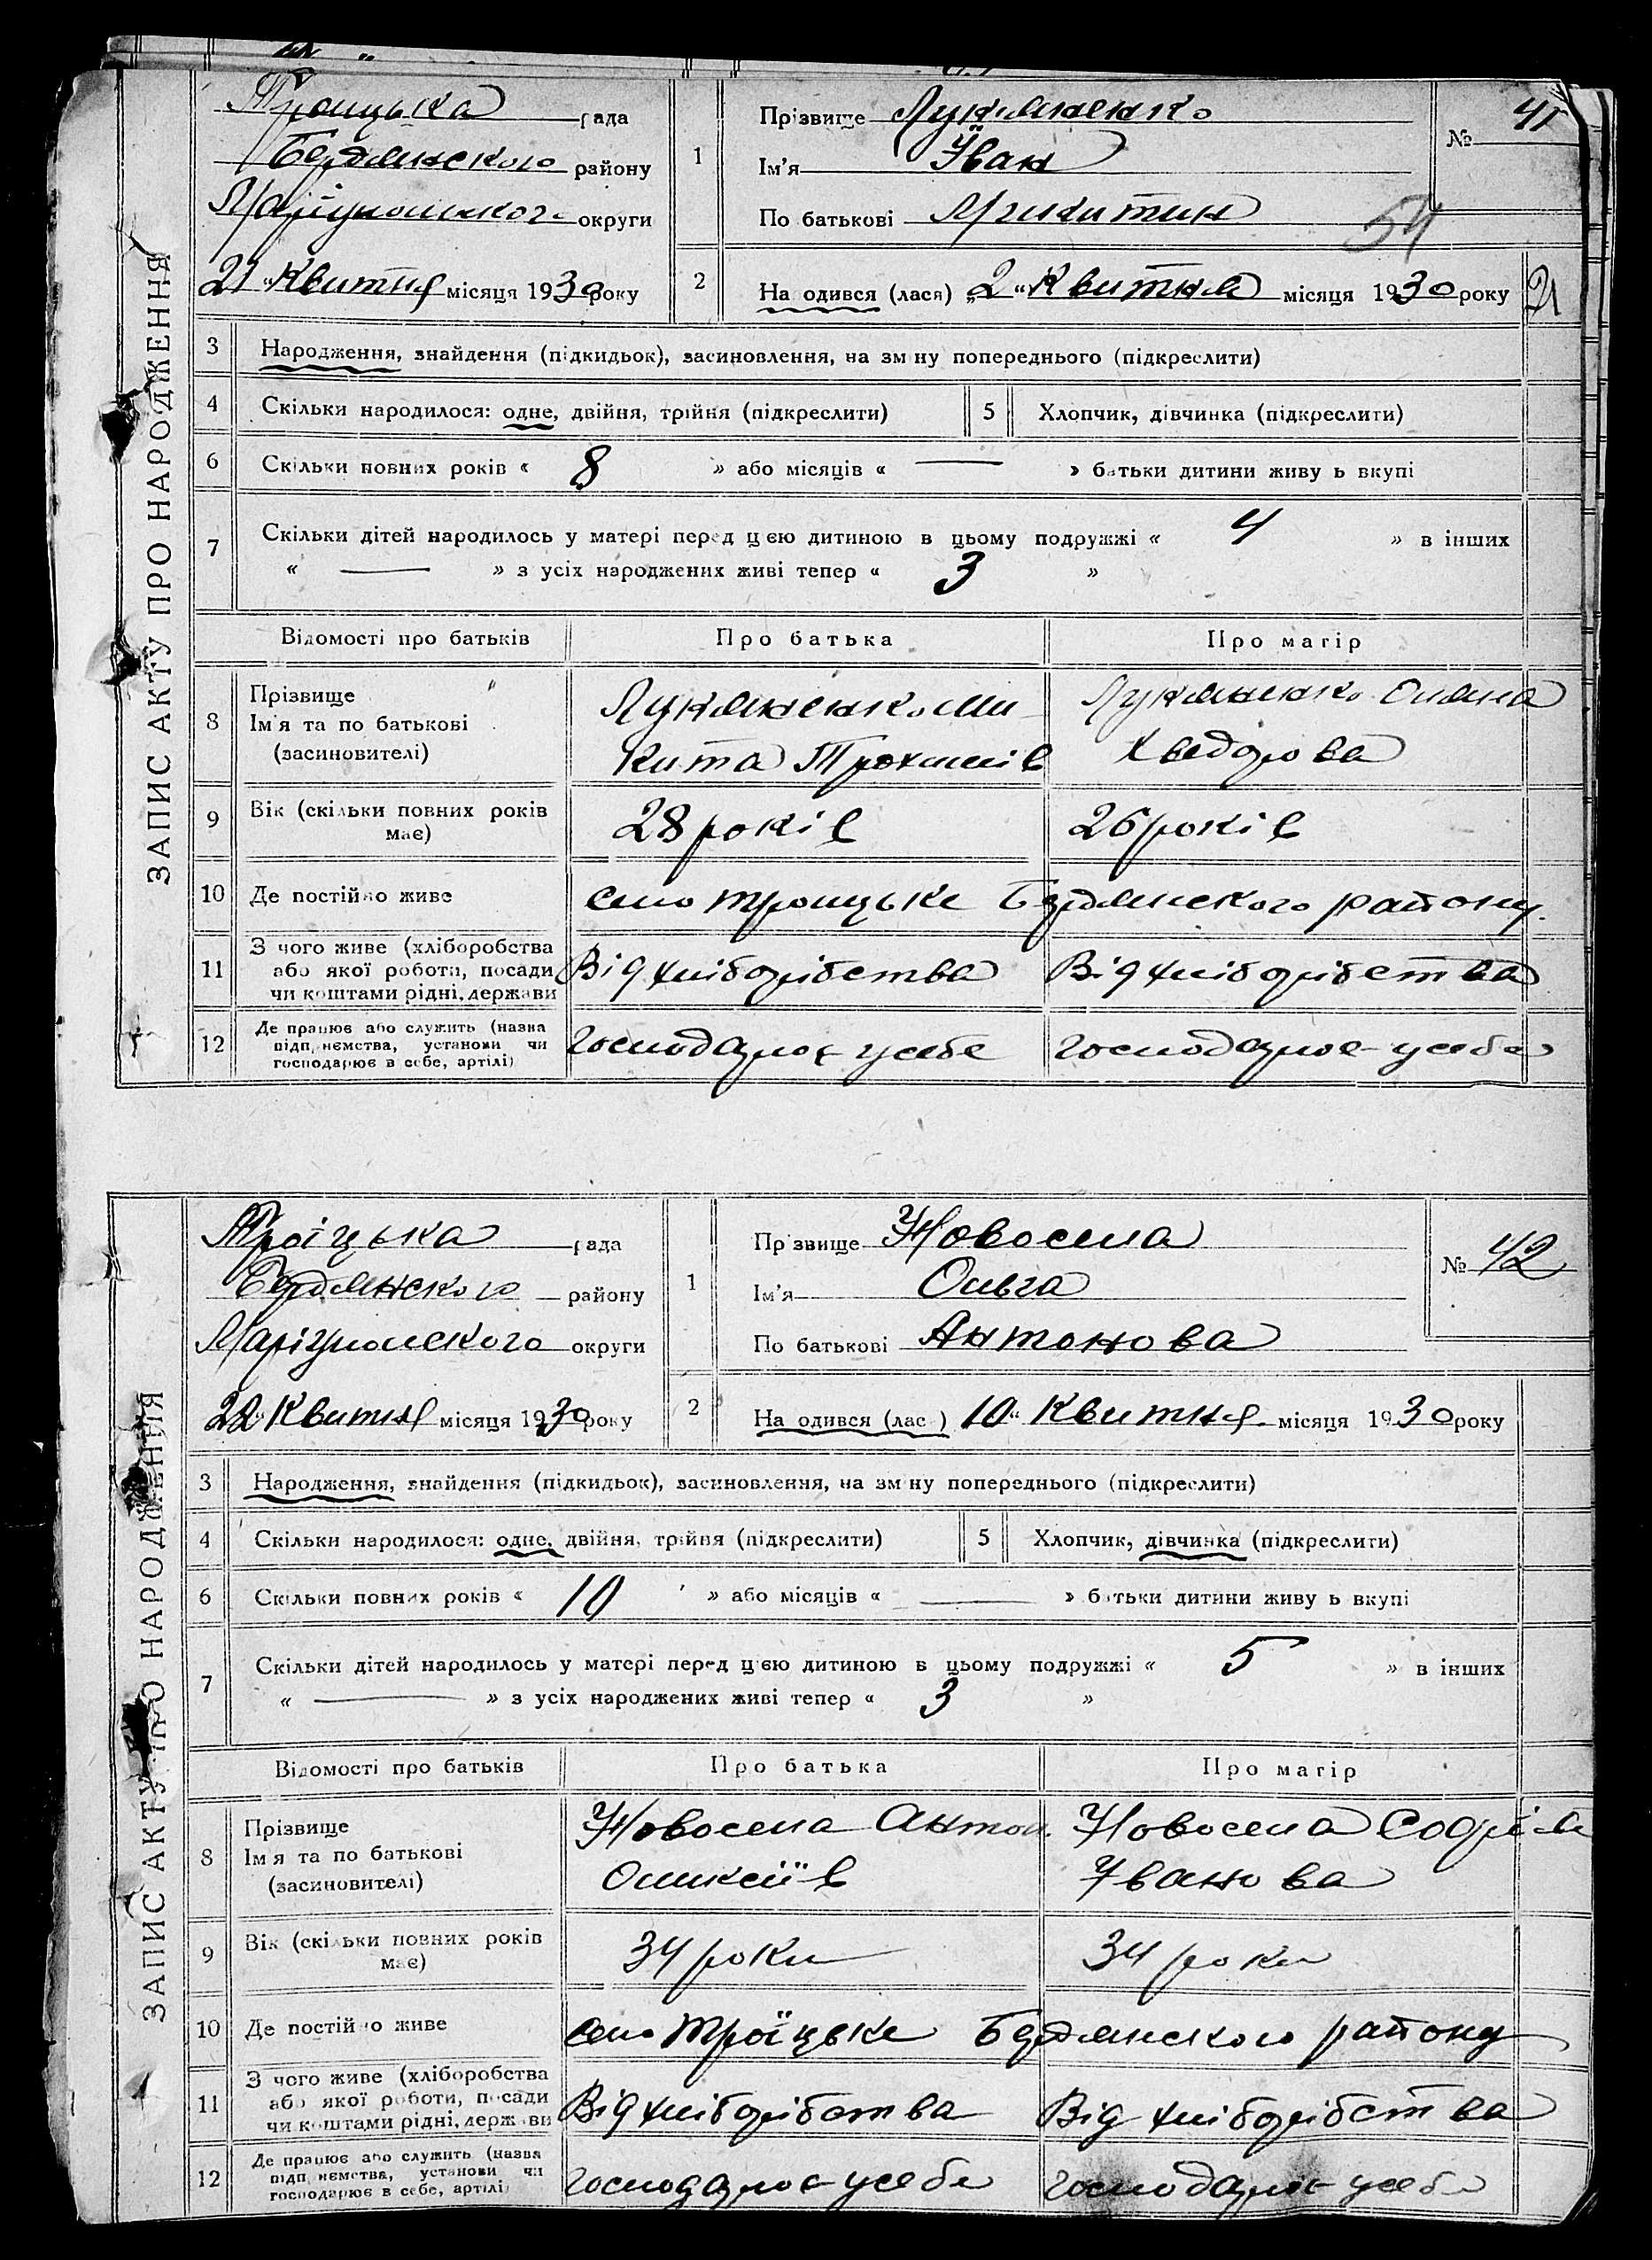 ЗАПИС АКТУ ПРО НАРОДЖЕННЯ
Троицька рада
Бердянского району
Маріупольского округи
21 Квитня місяця 1930 року
1 Прізвище Лукяненко
Ім'я Іван
По батькові Микитин
№ 41
54
2 На одився (лася) „2“ Квитня місяця 1930 року
21
3 Народження, знайдення (підкидьок), засиновлення, на зм ну попереднього (підкреслити)
4 Скільки народилося: одне, двійня, трійня (підкреслити) 5 Хлопчик, дівчинка (підкреслити)
6 Скільки повних років « 8 » або місяців « — » батьки дитини живу ь вкупі
7 Скільки дітей народилось у матері перед цією дитиною в цьому подружжі « 4 » в інших
« — » з усіх народжених живі тепер « 3 »
Відомості про батьків Про батька Про матір
8 Прізвище
Ім'я та по батькові
(засиновителі)
Лукяненко Ми
кита Трохимів
Лукяненко Оляна
Хведорова
9 Вік (скільки повних років
має)
28 років 26 років
10 Де постійно живе село троицьке Бердянского району.
11 З чого живе (хліборобства
або якої роботи, посади
чи коштами рідні, держави
Від хліборібства Від хліборібства
12 Де працює або служить (назва
підп, ємства, установи чи
господарює в себе, артілі)
господарює усебе господарює усебе
ЗАПИС АКТУ ПРО НАРОДЖЕННЯ
Троїцька рада
Бердянского району
Маріупольского округи
22 Квитня місяця 1930 року
1 Пр звище Новосела
Ім'я Ольга
По батькові Антонова
№ 42
2 На одився (лас ) 10“ Квитня місяця 1930 року
3 Народження, знайдення (підкидьок), засиновлення, на зм ну попереднього (підкреслити)
4 Скільки народилося: одне, двійня, трійня (підкреслити) 5 Хлопчик, дівчинка (підкреслити)
6 Скільки повних років « 10 » або місяців « — » батьки дитини живу ь вкупі
7 Скільки дітей народилось у матері перед цією дитиною в цьому подружжі « 5 » в інших
« — » з усіх народжених живі тепер « 3 »
Відомості про батьків Про батька Про матір
8 Прізвище
Ім'я та по батькові
(засиновителі)
Новосела Антон.
Олексіїв
Новосела Софія
Іванова
9 Вік (скільки повних років
має)
34 роки 34 роки
10 Де постійно живе село Троїцьке Бердянского району
11 З чого живе (хліборобства
або якої роботи, посади
чи коштами рідні, держави
Від хліборібства Від хліборібства
12 Де працює або служить (назва
підп, ємства, установи чи
господарює в себе, артілі)
господарює усебе господарює усебе